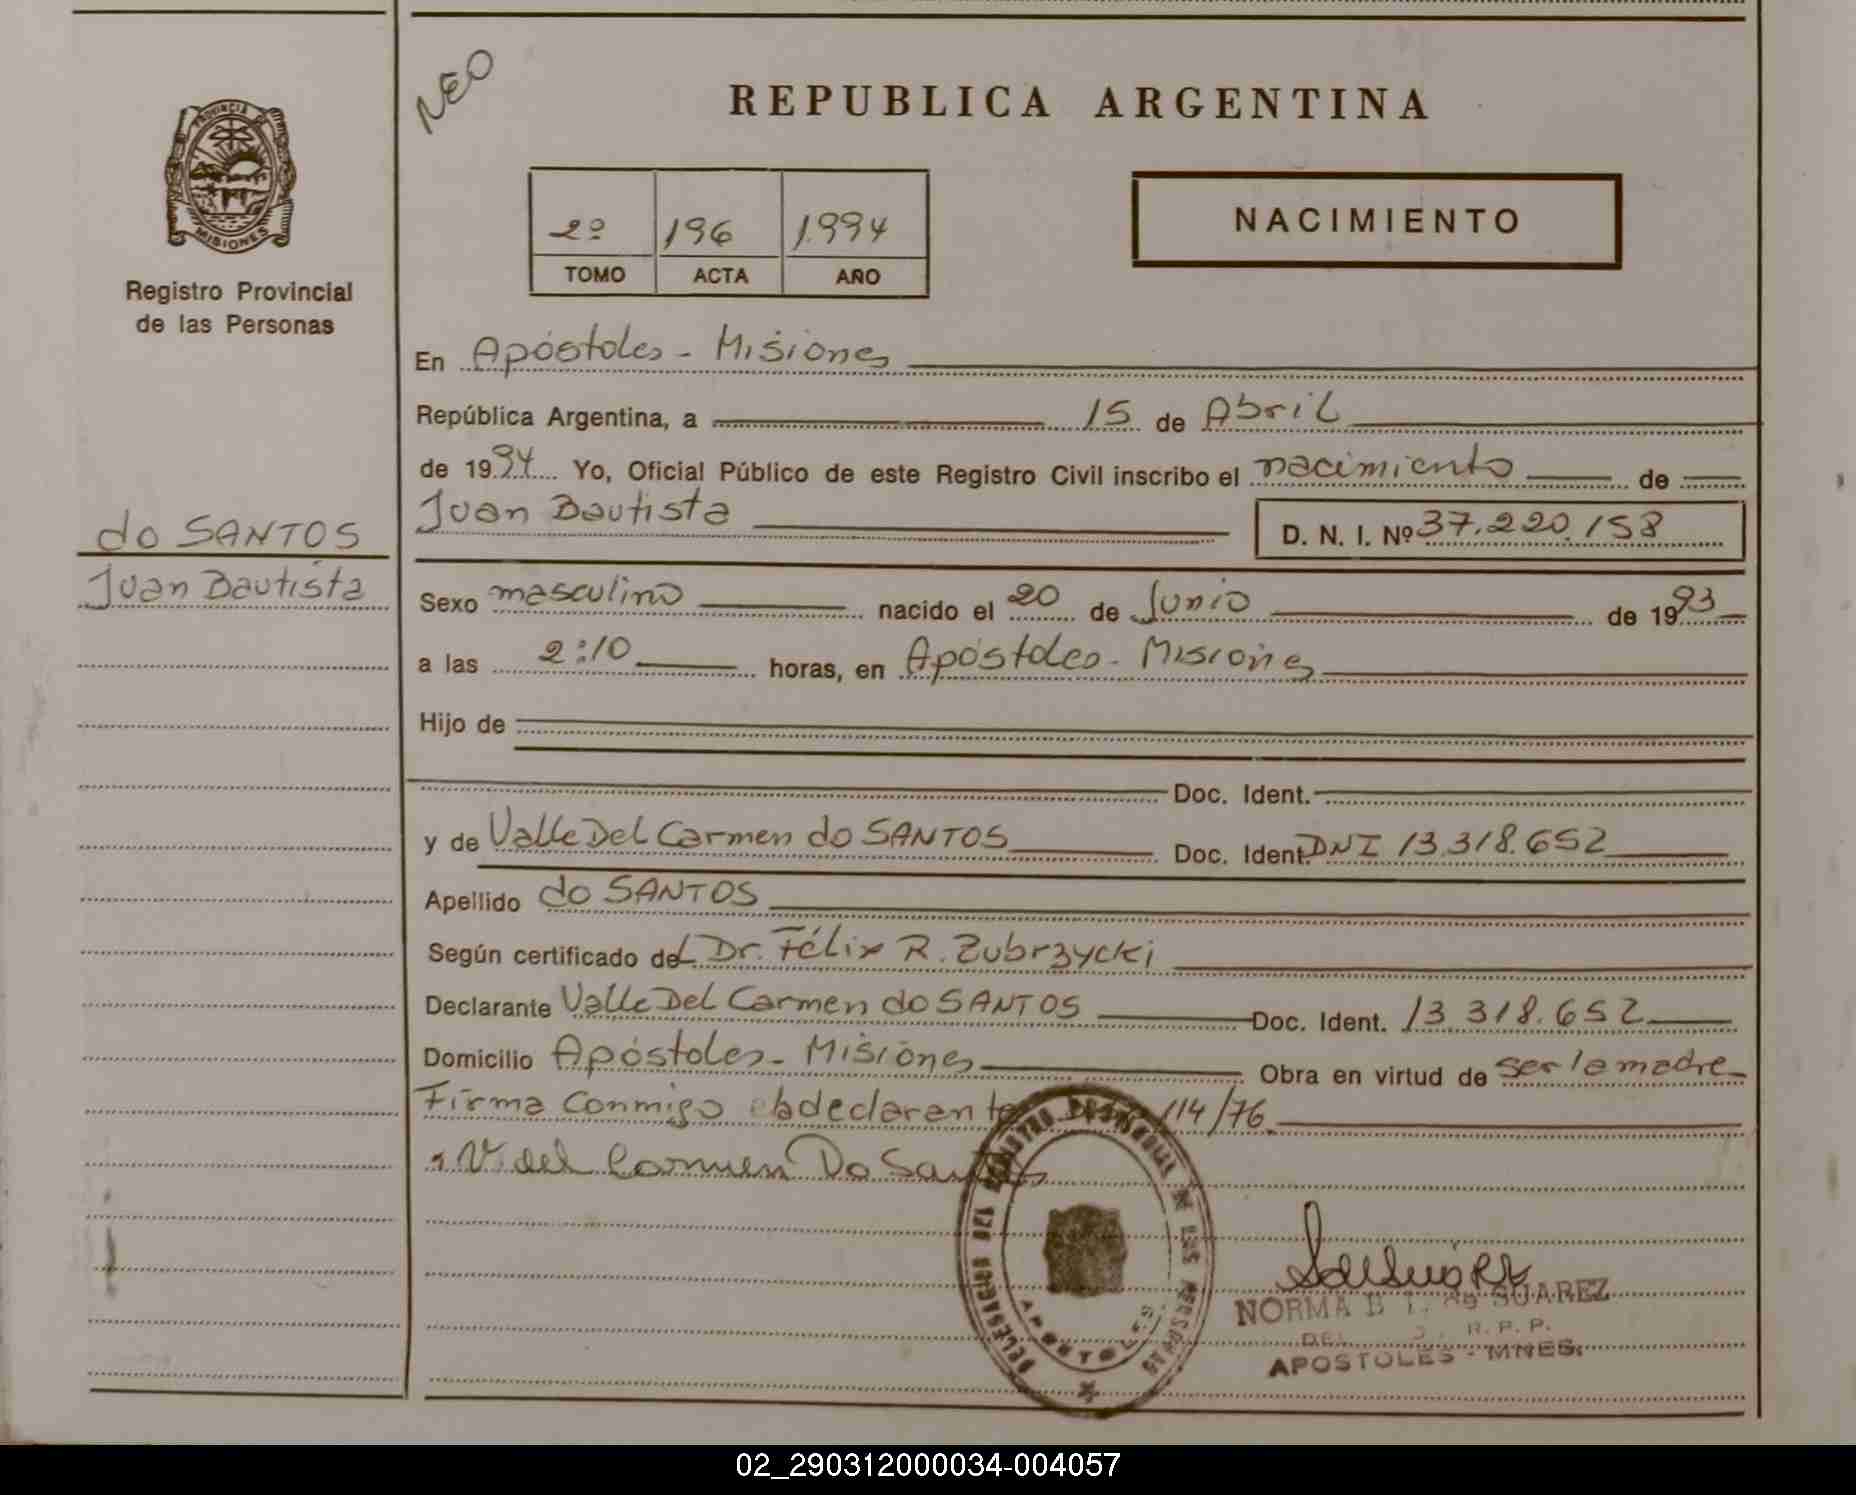 NEO
REPUBLICA ARGENTINA
PROVINCIA DE
MISIONES
Registro Provincial
de las Personas
2º 196 1994
TOMO ACTA AÑO
NACIMIENTO
En Apóstoles - Misiones
República Argentina, a 15 de Abril
de 1994 Yo, Oficial Público de este Registro Civil inscribo el nacimiento de
Juan Bautista
D. N. I. Nº 37.220.158
do SANTOS
Juan Bautista
Sexo masculino nacido el 20 de Junio de 1993
a las 2:10 horas, en Apóstoles - Misiones
Hijo de
Doc. Ident.
y de Valle Del Carmen do SANTOS Doc. Ident. DNI 13.318.652
Apellido do SANTOS
Según certificado del Dr. Félix R. Zubrzycki
Declarante Valle Del Carmen do SANTOS Doc. Ident. 13.318.652
Domicilio Apóstoles - Misiones Obra en virtud de ser la madre
Firma conmigo la declarante 114/76.
V. del Carmen Do Santos
DEL REGISTRO PROVINCIAL DE LAS PERSONAS
APOSTOLES
NORMA B T. de SUAREZ
R. P. P.
APOSTOLES - MNES.
02_290312000034-004057